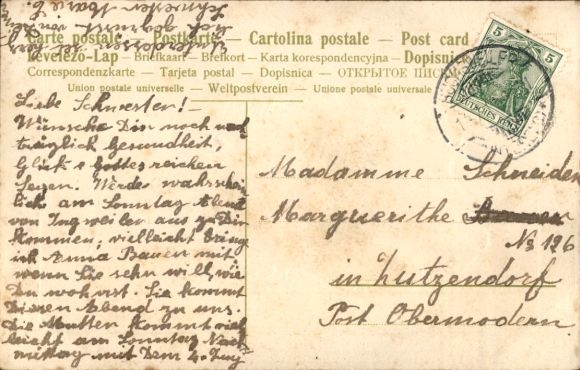 Carte postale – Postkarte – Cartolina postale – Post card
Levelező-Lap – Briefkaart – Brefkort – Karta korespondencyjna – Dopisnice
Correspondenzkarte – Tarjeta postal – Dopisnica – ОТКРЫТОЕ ПИСЬМО
Union postale universelle – Weltpostverein – Unione postale universale
5 5
DEUTSCHES REICH
Liebe Schwester!–
Wünsche Dir noch nach
träglich Gesundheit,
Glück & Gottes reichen
Segen. Werde wahrschein
lich am Sonntag Abend
von Ingweiler aus zu Dir
kommen; vielleicht bringe
ich Anna Bauer mit
wenn Sie sehn will, wie
Du wohnst. Sie kommt
Diesen Abend zu uns.
Die Mutter kommt viel
leicht am Sonntag Nach
mittag mit Dem 4. Zug
Schwester Marie
Madamme Schneider
Marguerithe
No 126
in Lutzendorf
Post Obermodern